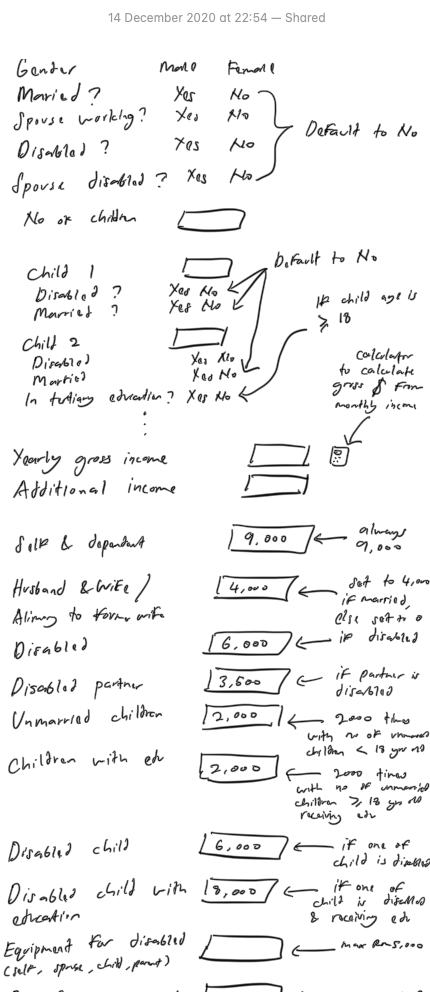 14 December 2020 at 22:54 — Shared
Gender Male Female
Married? Yes No
Spouse working? Yes No
Disabled? Yes No
Spouse disabled? Yes No
Default to No
No of children
Child 1
Default to No
Disabled? Yes No
Married? Yes No
If child age is
≥ 18
Child 2
Disabled Yes No
Married Yes No
In tertiary education? Yes No
calculator
to calculate
gross $ from
monthly income
Yearly gross income
Additional income
Self & dependent 9,000
always
9,000
Husband & Wife /
Alimony to former wife
4,000
set to 4,000
if married,
else set to 0
Disabled 6,000 if disabled
Disabled partner 3,500 if partner is
disabled
Unmarried children 2,000 2000 times
with no of unmarried
children < 18 yrs old
Children with edu 2,000 2000 times
with no of unmarried
children ≥ 18 yrs old
receiving edu
Disabled child 6,000 if one of
child is disabled
Disabled child with
education
8,000
if one of
child is disabled
& receiving edu
Equipment for disabled
(self, spouse, child, parent)
max RM5,000